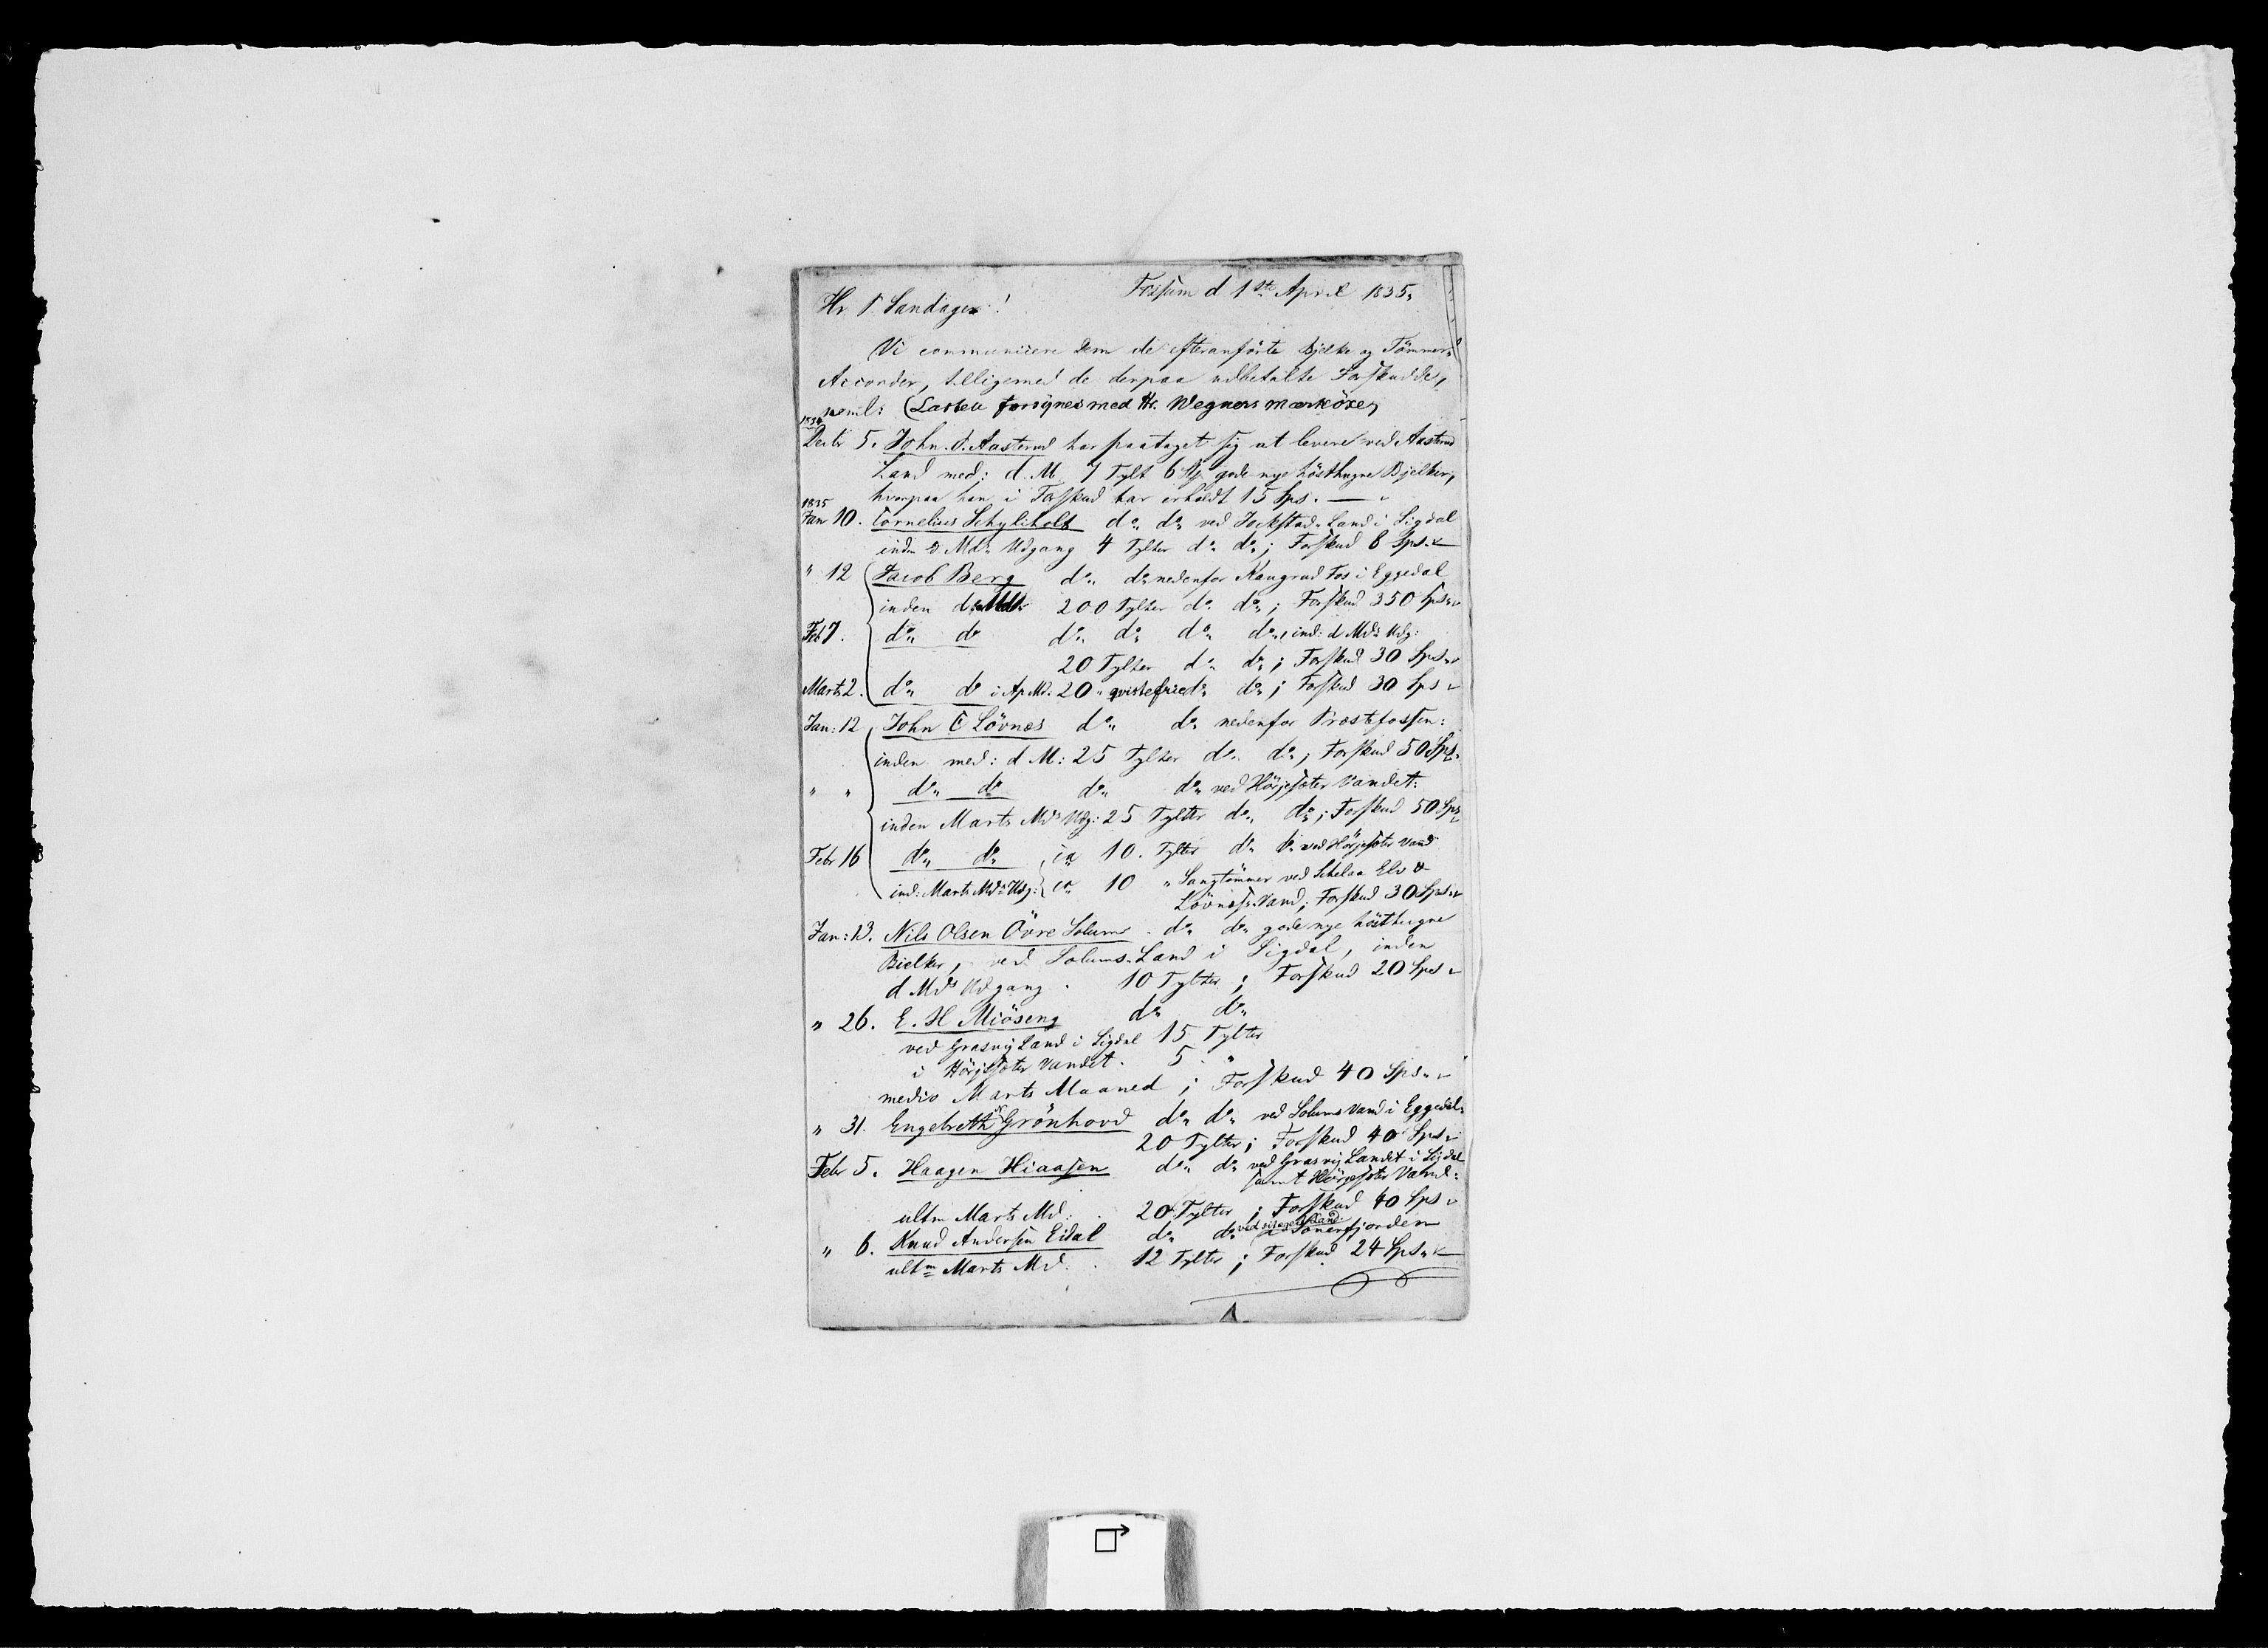 Fossum d 1ste April 1835,
Hr. P. Sandager!
Vi communicere Dem de efteranförte Bjelke og Tömmer
Accorder, tilligemed de derpaa udbetalte Forskudde,
neml: (Lasten forsynes med Hr. Wegners mærköxe)
1834
Decbr 5. John O. Aasterud har paataget sig at levere ved Aasterud
Land med: d. M. 7 Tylt 6 St. gode nye hösthugne Bjelker,
hvorpaa han i Forskud har erholdt 15 Sps. —
1835
Jan 10. Cornelius d°„ d°„ ved Land i Sigdal
inden d Mds Udgang 4 Tylter d°„ d°„; Forskud 8 Sps.
" 12 Jacob Berg d°„ d°„ nedenfor Kaugrud Fos i Eggedal
inden 200 Tylter d°„ d°„; Forskud 350 Sps.
Feb 7. d°„ d° d°„ d°„ d°„ d°„, ind: d Mds Udg:
20 Tylter d°„ d°„; Forskud 30 Sps.
Marts 2. d°„ d° i Ap. Md. 20 " qvistefrie d°„ d°„; Forskud 30 Sps
Jan: 12 John C Lövnæs d°„ d°„ nedenfor Præstefossen:
inden med: d M: 25 Tylter d°„ d°„; Forskud 50 Sps.
" " d°„ d°„ d°„ d°„ ved Hörjesæter Vandet:
inden Marts Mds Udg: 25 Tylter d°„ d°„; Forskud 50 Sps
Febr 16 d°„ d°„ ca 10. Tylter d°„ d°„ ved Hörjesæter Vand
ind: Marts Mds Udg: ca 10 " Langtömmer ved Elv &
Lövnæs-Vand; Forskud 30 Sps.
Jan: 13. Nils Olsen Övre Solum d°„ d°„ gode nye hösthugne
Bielker, ved Solums-Land i Sigdal, inden
d Mds Udgang . 10 Tylter; Forskud 20 Sps
" 26. E. H Miöseng d°„ d°„
ved Grasvij Land i Sigdal 15 Tylter
i Hörjesæter Vandet. 5 "
medio Marts Maaned; Forskud 40 Sps.
" 31. Engebreth Grönhovd d°„ d°„ ved Solums Vand i Eggedal
20 Tylter; Forskud 40 Sps
Febr 5. Haagen Hiaasen d°„ d°„ ved Grasvij Landet i Sigdal
samt Hörjesæter Vand:
ultm Marts Md: 20 Tylter; Forskud 40 Sps
" 6. Knud Andersen Eidal d°„ d°„ ved Land Sonerfjorden
ultm Marts Md. . 12 Tylter; Forskud 24 Sps.